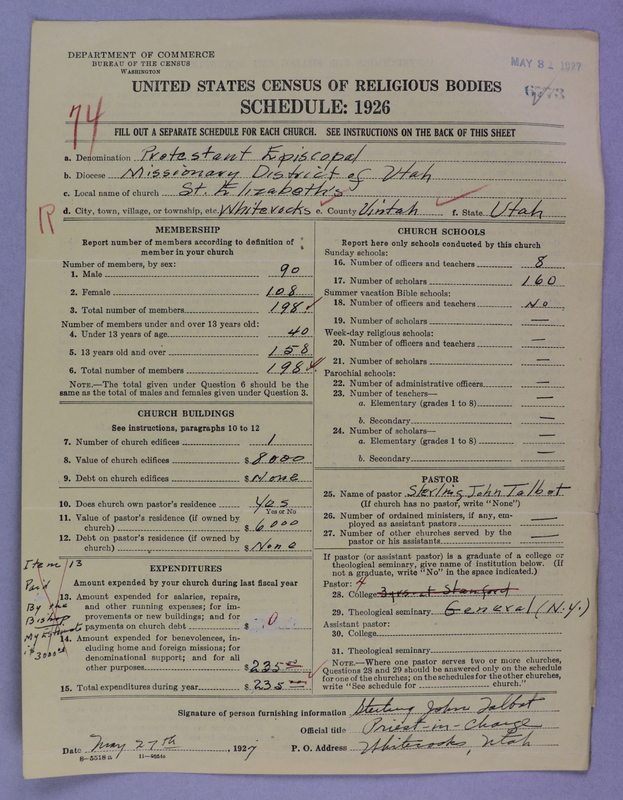 DEPARTMENT OF COMMERCE
BUREAU OF THE CENSUS
WASHINGTON
MAY 31 1927
UNITED STATES CENSUS OF RELIGIOUS BODIES
SCHEDULE: 1926
74
FILL OUT A SEPARATE SCHEDULE FOR EACH CHURCH. SEE INSTRUCTIONS ON THE BACK OF THIS SHEET
a. Denomination Protestant Episcopal
b. Diocese Missionary District of Utah
c. Local name of church St. Elizabeth's
R d. City, town, village, or township, etc. Whiterocks e. County Uintah f. State Utah
MEMBERSHIP
Report number of members according to definition of member in your church
Number of members, by sex:
1. Male 90
2. Female 108
3. Total number of members 198
Number of members under and over 13 years old:
4. Under 13 years of age 40
5. 13 years old and over 158
6. Total number of members 198
NOTE.—The total given under Question 6 should be the same as the total of males and females given under Question 3.
CHURCH BUILDINGS
See instructions, paragraphs 10 to 12
7. Number of church edifices 1
8. Value of church edifices $8000
9. Debt on church edifices $None
10. Does church own pastor's residence Yes
Yes or No
11. Value of pastor's residence (if owned by church) $6000
12. Debt on pastor's residence (if owned by church) $None
EXPENDITURES
Amount expended by your church during last fiscal year
Item 13
Paid
By the
Bishop
My Estimate
is 3000
13. Amount expended for salaries, repairs, and other running expenses; for improvements or new buildings; and for payments on church debt $ 0
14. Amount expended for benevolences, including home and foreign missions; for denominational support; and for all other purposes $235
15. Total expenditures during year $235
CHURCH SCHOOLS
Report here only schools conducted by this church
Sunday schools:
16. Number of officers and teachers 8
17. Number of scholars 160
Summer vacation Bible schools:
18. Number of officers and teachers No
19. Number of scholars —
Week-day religious schools:
20. Number of officers and teachers —
21. Number of scholars —
Parochial schools:
22. Number of administrative officers —
23. Number of teachers—
a. Elementary (grades 1 to 8) —
b. Secondary —
24. Number of scholars—
a. Elementary (grades 1 to 8) —
b. Secondary —
PASTOR
25. Name of pastor Sterling John Talbot
(If church has no pastor, write "None")
26. Number of ordained ministers, if any, employed as assistant pastors —
27. Number of other churches served by the pastor or his assistants —
If pastor (or assistant pastor) is a graduate of a college or theological seminary, give name of institution below. (If not a graduate, write "No" in the space indicated.)
Pastor:
28. College 3 yrs. at Stanford
29. Theological seminary General (N.Y.)
Assistant pastor:
30. College
31. Theological seminary
NOTE.—Where one pastor serves two or more churches, Questions 28 and 29 should be answered only on the schedule for one of the churches; on the schedules for the other churches, write "See schedule for church."
Signature of person furnishing information Sterling John Talbot
Official title Priest-in-Charge
Date May 27th, 1927 P. O. Address Whiterocks, Utah